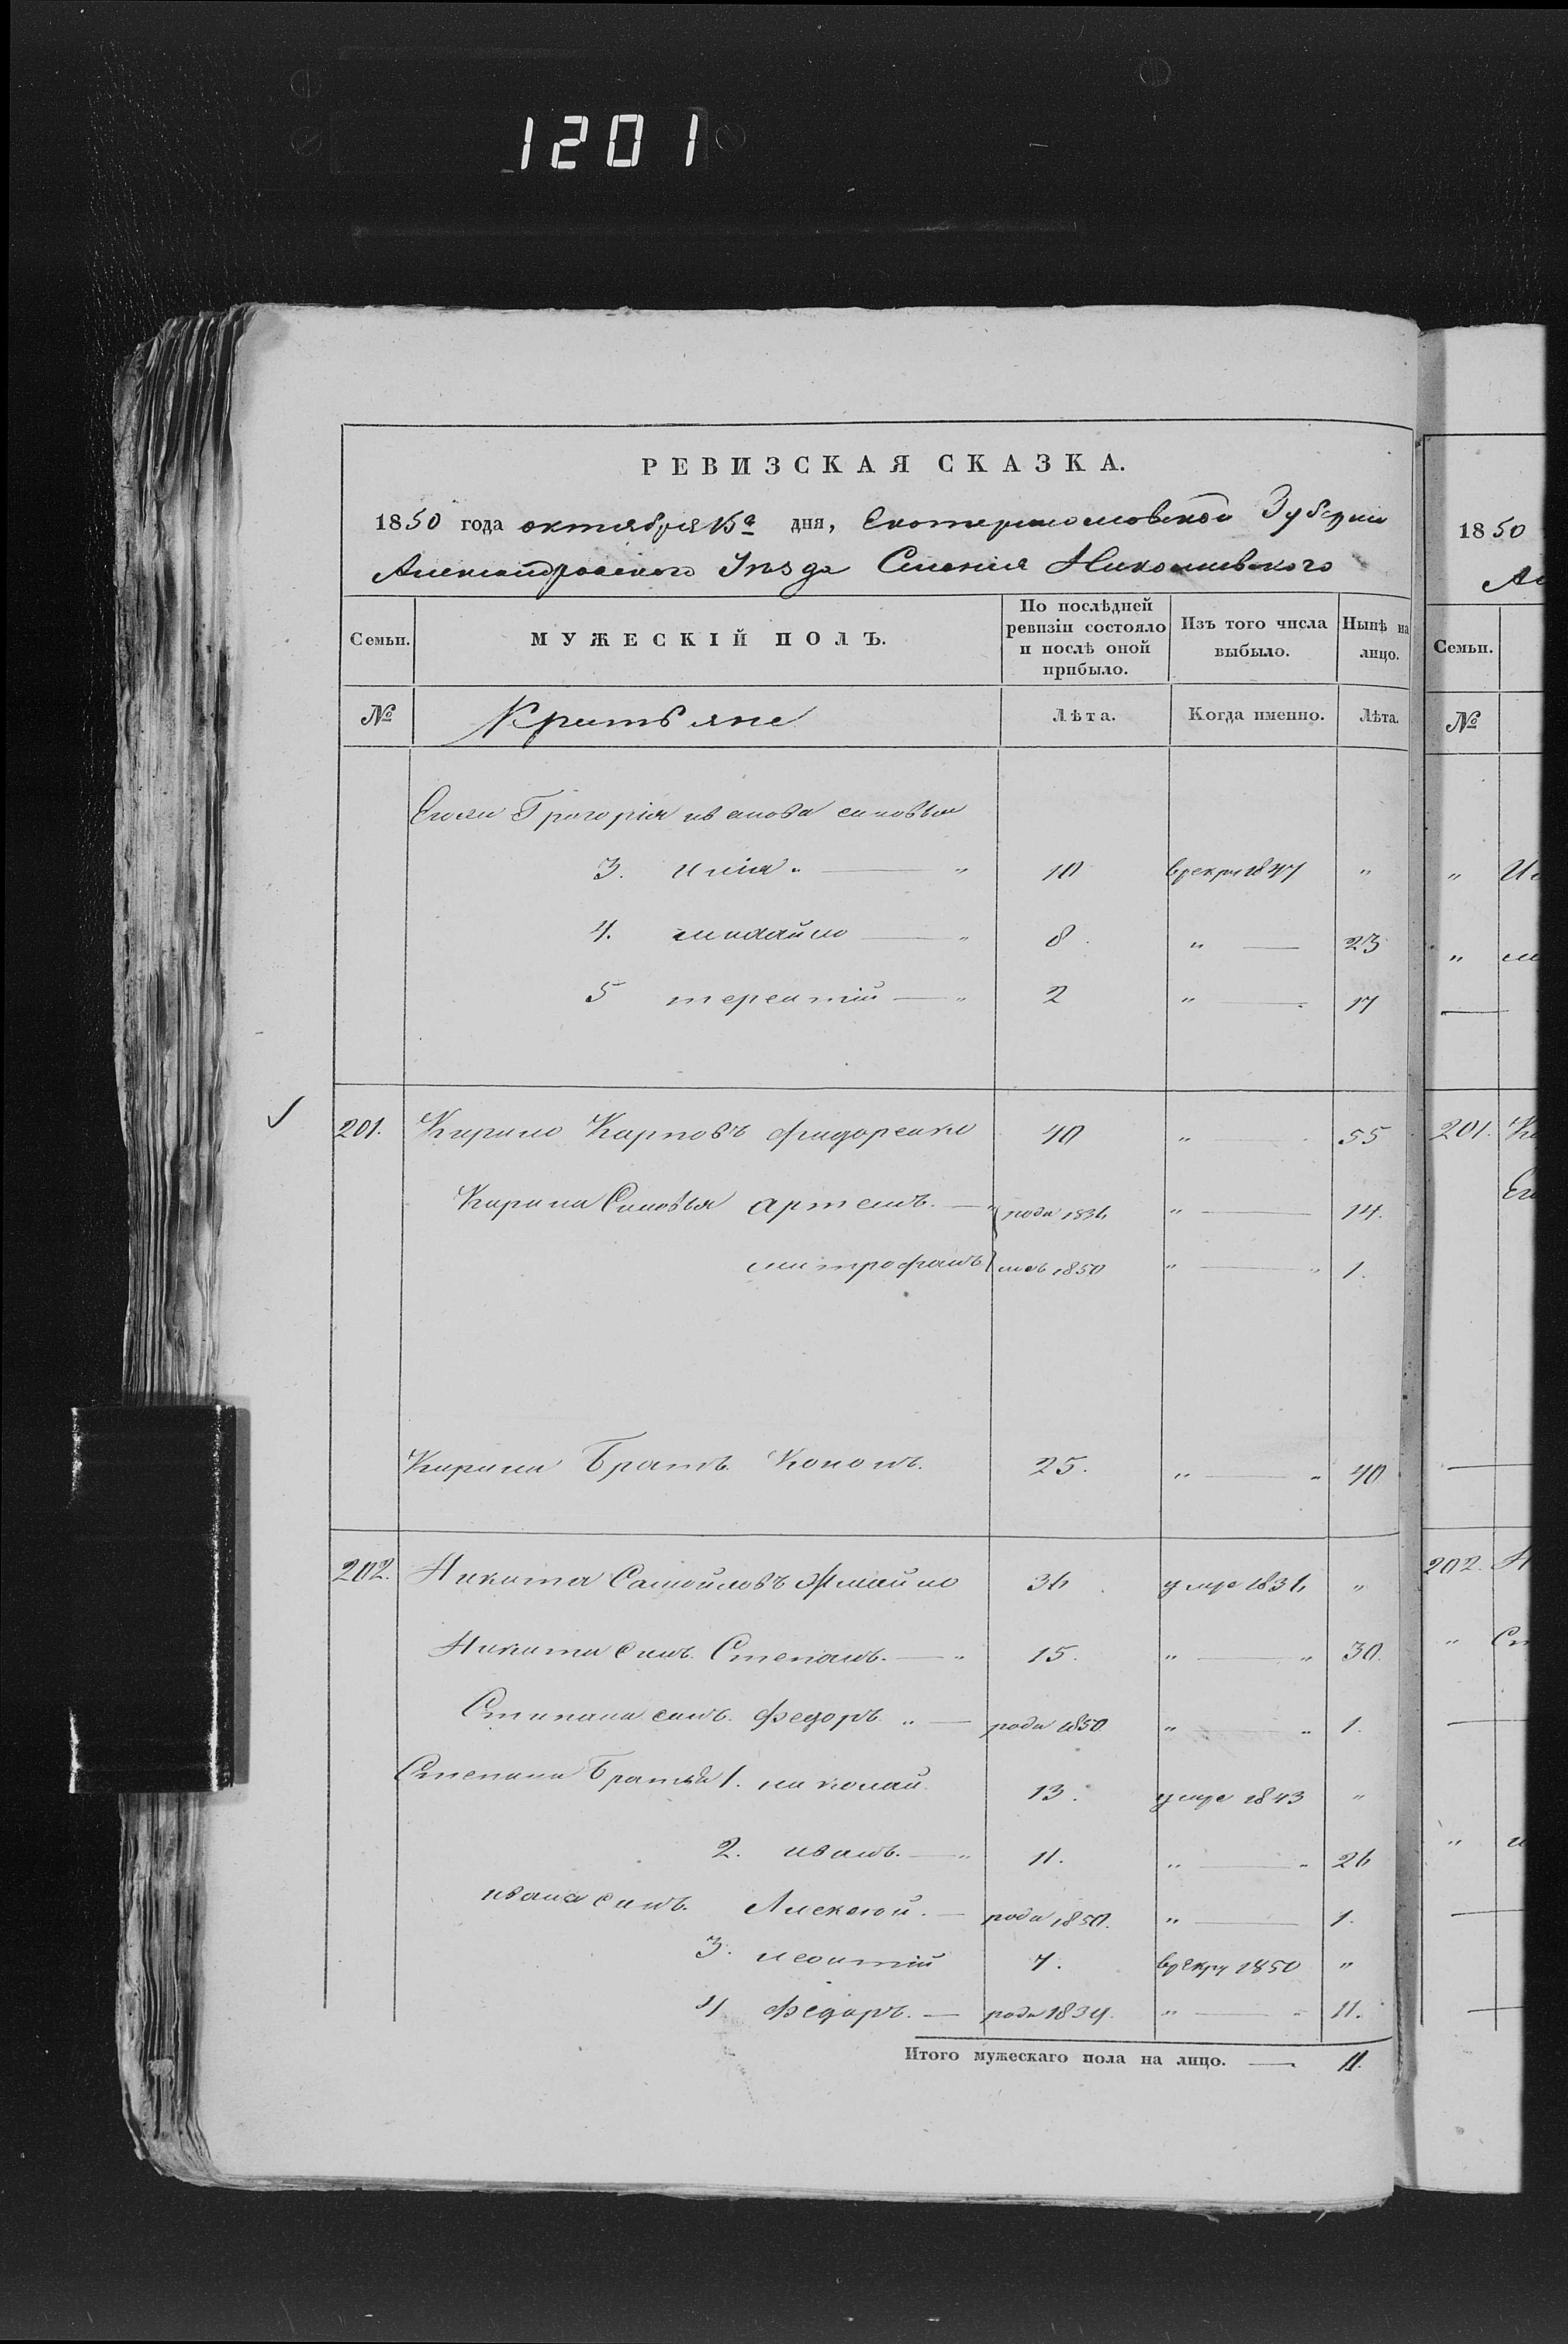 1201
РЕВИЗСКАЯ СКАЗКА.
1850 года октября 15го дня, Екатеринославской Губернии
Александровского Уезда Селения Николаевского
Семьи. МУЖЕСКІЙ ПОЛЪ. По послѣдней ревизіи состояло и послѣ оной прибыло. Изъ того числа выбыло. Нынѣ на лицо.
№ Лѣта. Когда именно. Лѣта.
Григорія иванова синовья
3. илія " — " 10 врекру 1847 "
4. михайло — " 8. " — 23
5 терентій — " 2 " — 17
201. Кирило Карповъ Фидоренко 40 " 55
Кирила Синовья артемъ. — рода 1836 " — 14.
митрофанъ 1850 " — " 1.
Кирила Братъ Кононъ. 25. " — " 40
202. Никита Самойловъ 36. умре 1836 "
Никита синъ. Степанъ. — " 15. " — " 30.
Стипана синъ. Федоръ " — рода 1850 " — " 1.
Степана Братья 1. николай. 13. умре 1843 "
2. иванъ. — " 11. " — " 26
ивана синъ. Алексей. — рода 1850. " — 1.
3. леонтій 7. врекру 1850 "
4 Федоръ. — рода 1839. " — " 11.
Итого мужескаго пола на лицо. — 11.
1850
Семьи.
№
"
"
201.
202.
"
"